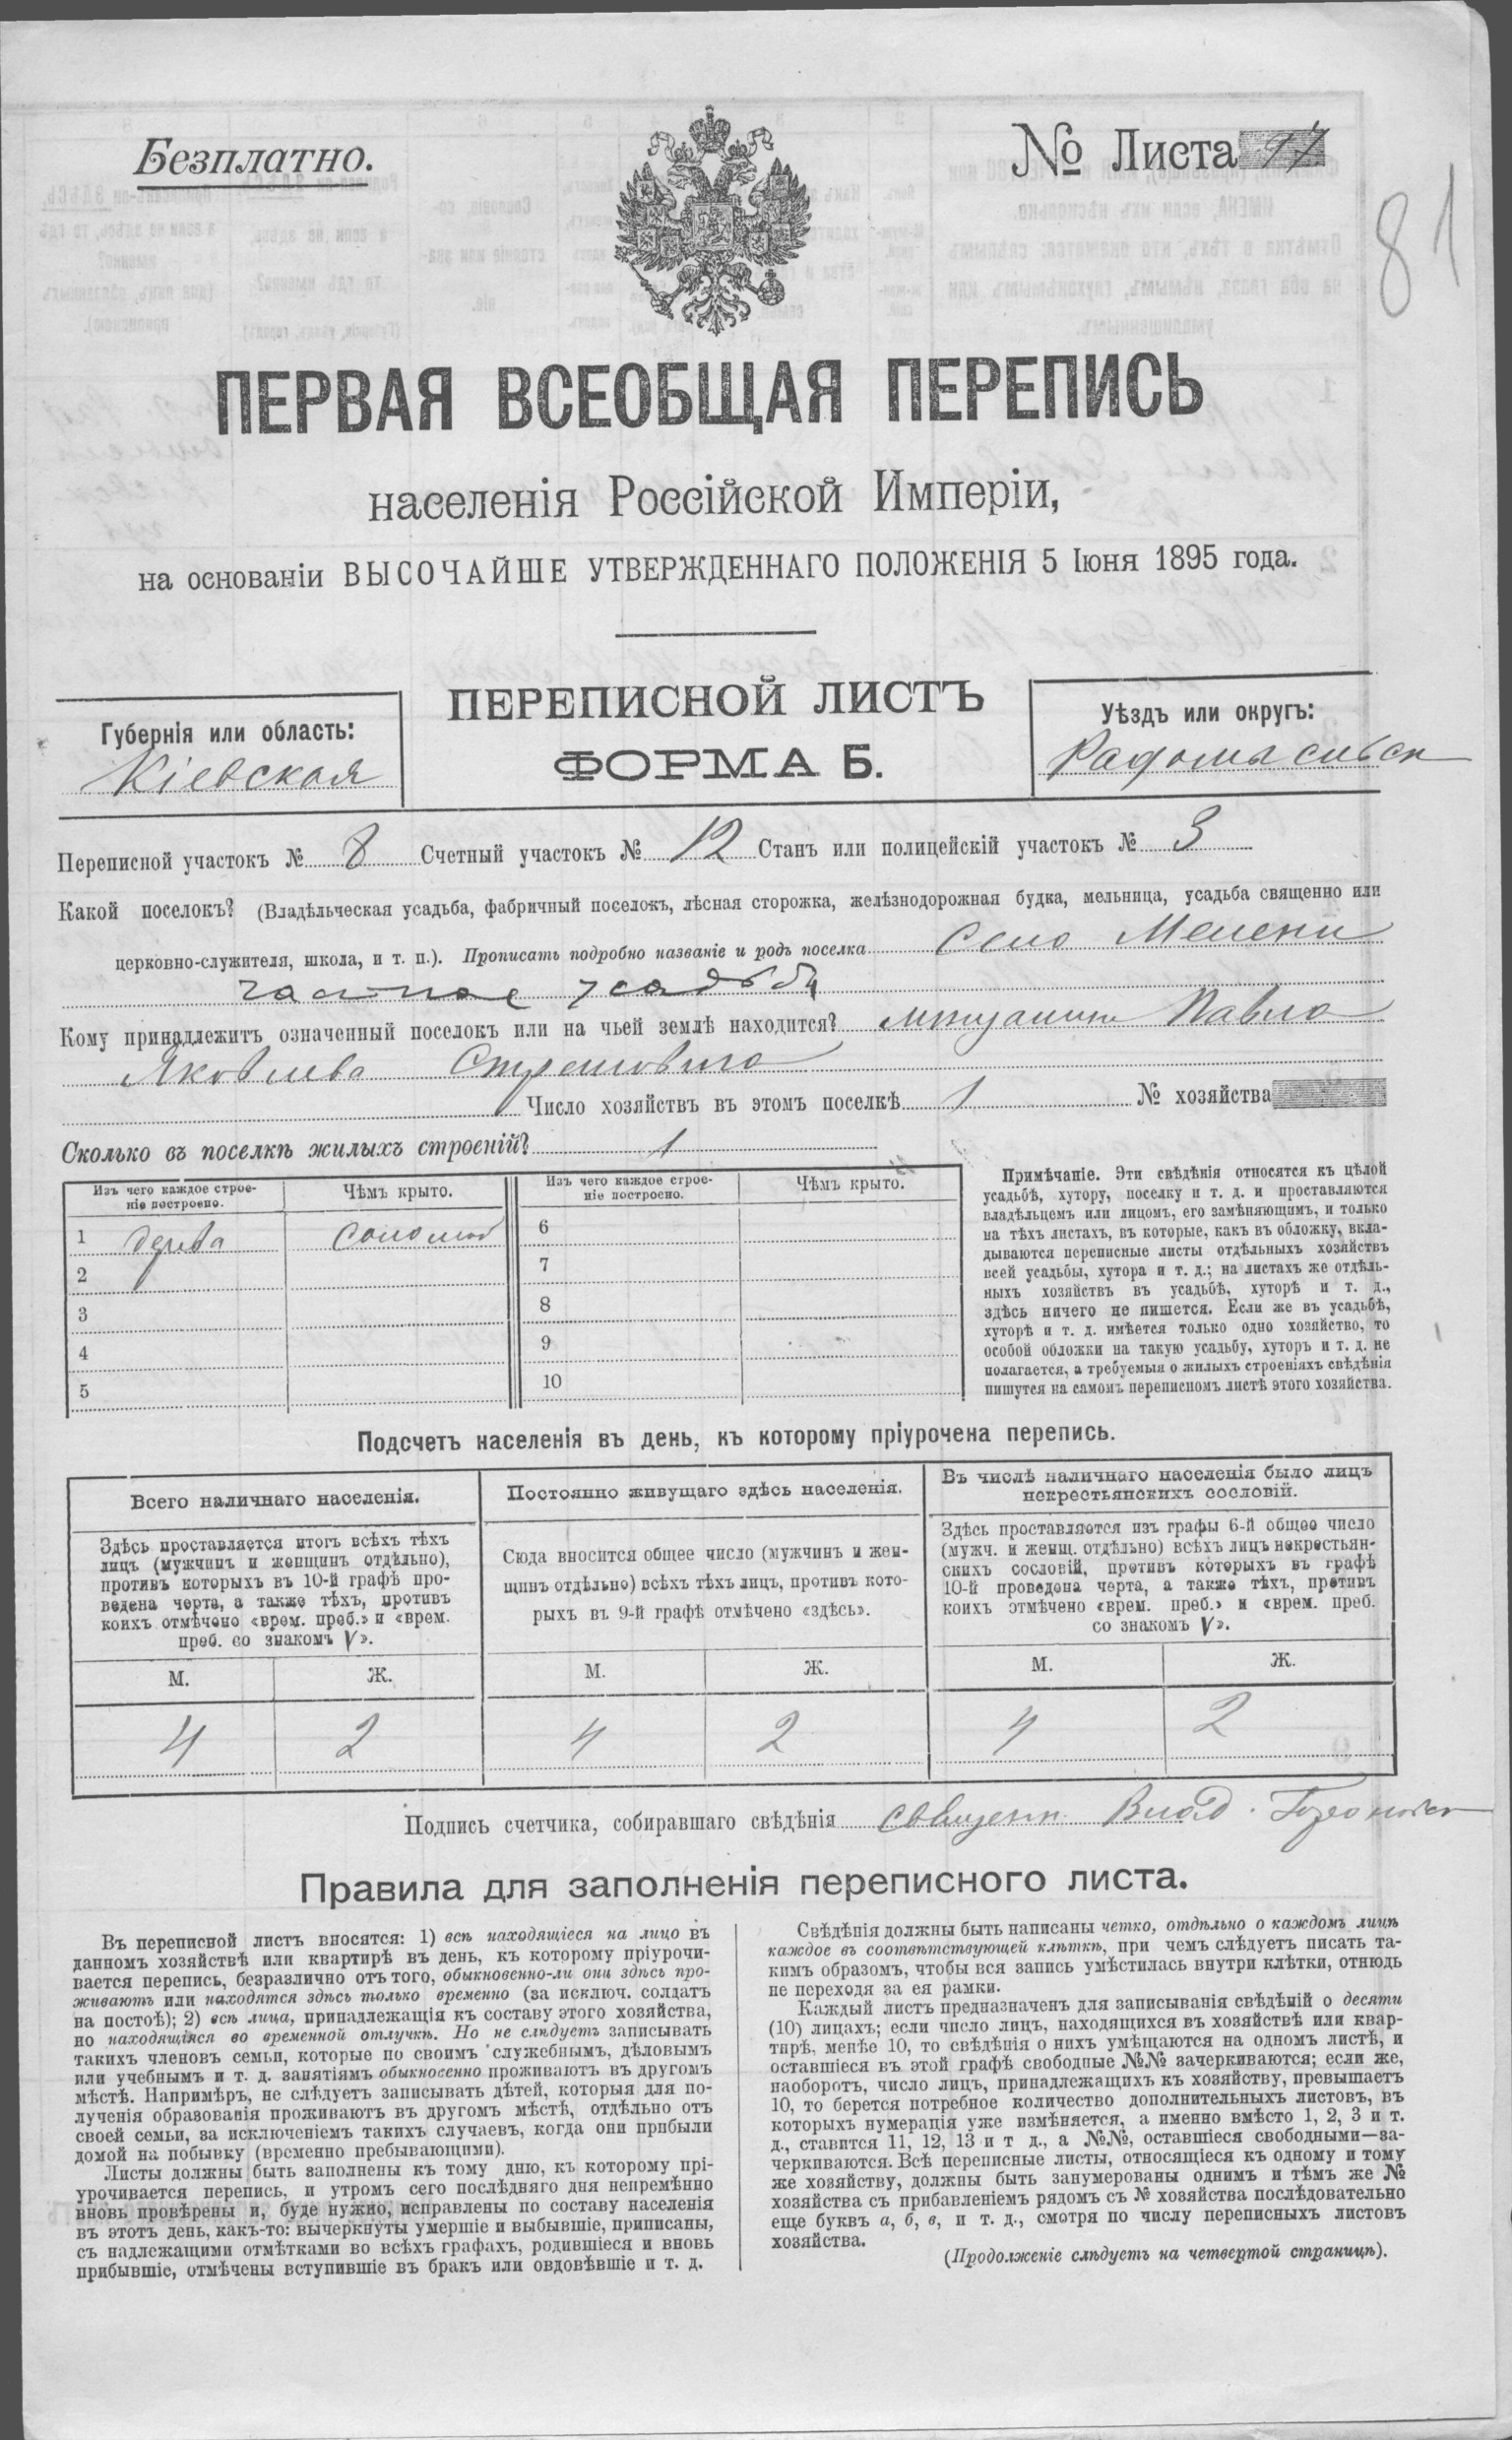 Безплатно.
№ Листа
81
ПЕРВАЯ ВСЕОБЩАЯ ПЕРЕПИСЬ
населенія Россійской Имперіи,
на основаніи ВЫСОЧАЙШЕ УТВЕРЖДЕННАГО ПОЛОЖЕНІЯ 5 Іюня 1895 года.
ПЕРЕПИСНОЙ ЛИСТЪ
ФОРМА Б.
Губернія или область:
Кіевская
Уѣздъ или округъ:
Радомысльск
Переписной участокъ № 8 Счетный участокъ № 12 Станъ или полицейскій участокъ № 3
Какой поселокъ? (Владѣльческая усадьба, фабричный поселокъ, лѣсная сторожка, желѣзнодорожная будка, мельница, усадьба священно или
церковно-служителя, школа, и т. п.). Прописать подробно названіе и родъ поселка Село Мелени
частное усадьба
Кому принадлежитъ означенный поселокъ или на чьей землѣ находится? Павла
Яковлева
Число хозяйствъ въ этомъ поселкѣ 1 № хозяйства
Сколько въ поселкѣ жилыхъ строеній? 1
Изъ чего каждое строе-
ніе построено.
Чѣмъ крыто.
Изъ чего каждое строе-
ніе построено.
Чѣмъ крыто.
1 дерева соломой 6
2 7
3 8
4 9
5 10
Примѣчаніе. Эти свѣдѣнія относятся къ цѣлой
усадьбѣ, хутору, поселку и т. д. и проставляются
владѣльцемъ или лицомъ, его замѣняющимъ, и только
на тѣхъ листахъ, въ которые, какъ въ обложку, вкла-
дываются переписные листы отдѣльныхъ хозяйствъ
всей усадьбы, хутора и т. д.; на листахъ же отдѣль-
ныхъ хозяйствъ въ усадьбѣ, хуторѣ и т. д.,
здѣсь ничего не пишется. Если же въ усадьбѣ,
хуторѣ и т. д. имѣется только одно хозяйство, то
особой обложки на такую усадьбу, хуторъ и т. д. не
полагается, а требуемыя о жилыхъ строеніяхъ свѣдѣнія
пишутся на самомъ переписномъ листѣ этого хозяйства.
Подсчетъ населенія въ день, къ которому пріурочена перепись.
Всего наличнаго населенія.
Здѣсь проставляется итогъ всѣхъ тѣхъ
лицъ (мужчинъ и женщинъ отдѣльно),
противъ которыхъ въ 10-й графѣ про-
ведена черта, а также тѣхъ, противъ
коихъ отмѣчено «врем. преб.» и «врем.
преб. со знакомъ V».
М. Ж.
4 2
Постоянно живущаго здѣсь населенія.
Сюда вносится общее число (мужчинъ и жен-
щинъ отдѣльно) всѣхъ тѣхъ лицъ, противъ кото-
рыхъ въ 9-й графѣ отмѣчено «здѣсь».
М. Ж.
4 2
Въ числѣ наличнаго населенія было лицъ
некрестьянскихъ сословій.
Здѣсь проставляется изъ графы 6-й общее число
(мужч. и женщ. отдѣльно) всѣхъ лицъ некрестьян-
скихъ сословій, противъ которыхъ въ графѣ
10-й проведена черта, а также тѣхъ, противъ
коихъ отмѣчено «врем. преб.» и «врем. преб.
со знакомъ V».
М. Ж.
4 2
Подпись счетчика, собиравшаго свѣдѣнія Священн. Влад.
Правила для заполненія переписного листа.
Въ переписной листъ вносятся: 1) всѣ находящіеся на лицо въ
данномъ хозяйствѣ или квартирѣ въ день, къ которому пріурочи-
вается перепись, безразлично отъ того, обыкновенно-ли они здѣсь про-
живаютъ или находятся здѣсь только временно (за исключ. солдатъ
на постоѣ); 2) всѣ лица, принадлежащія къ составу этого хозяйства,
но находящіяся во временной отлучкѣ. Но не слѣдуетъ записывать
такихъ членовъ семьи, которые по своимъ служебнымъ, дѣловымъ
или учебнымъ и т. д. занятіямъ обыкновенно проживаютъ въ другомъ
мѣстѣ. Напримѣръ, не слѣдуетъ записывать дѣтей, которыя для по-
лученія образованія проживаютъ въ другомъ мѣстѣ, отдѣльно отъ
своей семьи, за исключеніемъ такихъ случаевъ, когда они прибыли
домой на побывку (временно пребывающими).
Листы должны быть заполнены къ тому дню, къ которому прі-
урочивается перепись, и утромъ сего послѣдняго дня непремѣнно
вновь провѣрены и, буде нужно, исправлены по составу населенія
въ этотъ день, какъ-то: вычеркнуты умершіе и выбывшіе, приписаны,
съ надлежащими отмѣтками во всѣхъ графахъ, родившіеся и вновь
прибывшіе, отмѣчены вступившіе въ бракъ или овдовѣвшіе и т. д.
Свѣдѣнія должны быть написаны четко, отдѣльно о каждомъ лицѣ
каждое въ соотвѣтствующей клѣткѣ, при чемъ слѣдуетъ писать та-
кимъ образомъ, чтобы вся запись умѣстилась внутри клѣтки, отнюдь
не переходя за ея рамки.
Каждый листъ предназначенъ для записыванія свѣдѣній о десяти
(10) лицахъ; если число лицъ, находящихся въ хозяйствѣ или квар-
тирѣ, менѣе 10, то свѣдѣнія о нихъ умѣщаются на одномъ листѣ, и
оставшіеся въ этой графѣ свободные №№ зачеркиваются; если же,
наоборотъ, число лицъ, принадлежащихъ къ хозяйству, превышаетъ
10, то берется потребное количество дополнительныхъ листовъ, въ
которыхъ нумерація уже измѣняется, а именно вмѣсто 1, 2, 3 и т.
д., ставится 11, 12, 13 и т д., а №№, оставшіеся свободными—за-
черкиваются. Всѣ переписные листы, относящіеся къ одному и тому
же хозяйству, должны быть занумерованы однимъ и тѣмъ же №
хозяйства съ прибавленіемъ рядомъ съ № хозяйства послѣдовательно
еще буквъ а, б, в, и т. д., смотря по числу переписныхъ листовъ
хозяйства.
(Продолженіе слѣдуетъ на четвертой страницѣ).